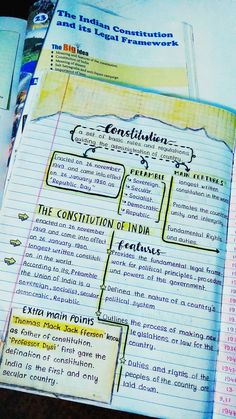 23
The Indian Constitution
and its Legal Framework
The Big Idea
Constitution
a set of basic rules and regulations
guiding the administration of country
Enacted on 26 november
1949 and came into effect
on 26 january 1950 as
"Republic Day"
PREAMBLE
Sovereign
Secular
Socialist
Democratic
Republic
MAIN FEATURES
Longest written
constitution in the
Promotes the country
unity and integrity
Fundamental Rights
and duties.
THE CONSTITUTION OF INDIA
Enacted on 26 november
1949 and came into effect
on 26 january, 1950.
Longest written constituti
on in the world.
According to its Preamble
the Union of India is a
sovereign, socialist, secular
democratic, Republic.
features
Provides the fundamental legal frame
work for political principles, procedure
and powers of the government.
Defines the nature of a country's
political system
Outlines the process of making new
legislations or law for the
country.
Duties and rights of the
peoples of the country are
laid down.
EXTRA MAIN POINTS
Thomas Mack Jack fferson know
as father of constitution.
"Professor Dyal" first gave the
defination of constitution.
India is the first and only
secular country.